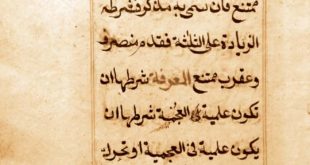 ممتنع فان سمى به مذكر فشرطه
الزيادة على الثلثة فقدم منصرف
وعقرب ممتنع المعرفة شرطها ان
تكون علمية فى العجمة شرطها ان
يكون علمية فى العجمية او تحرك